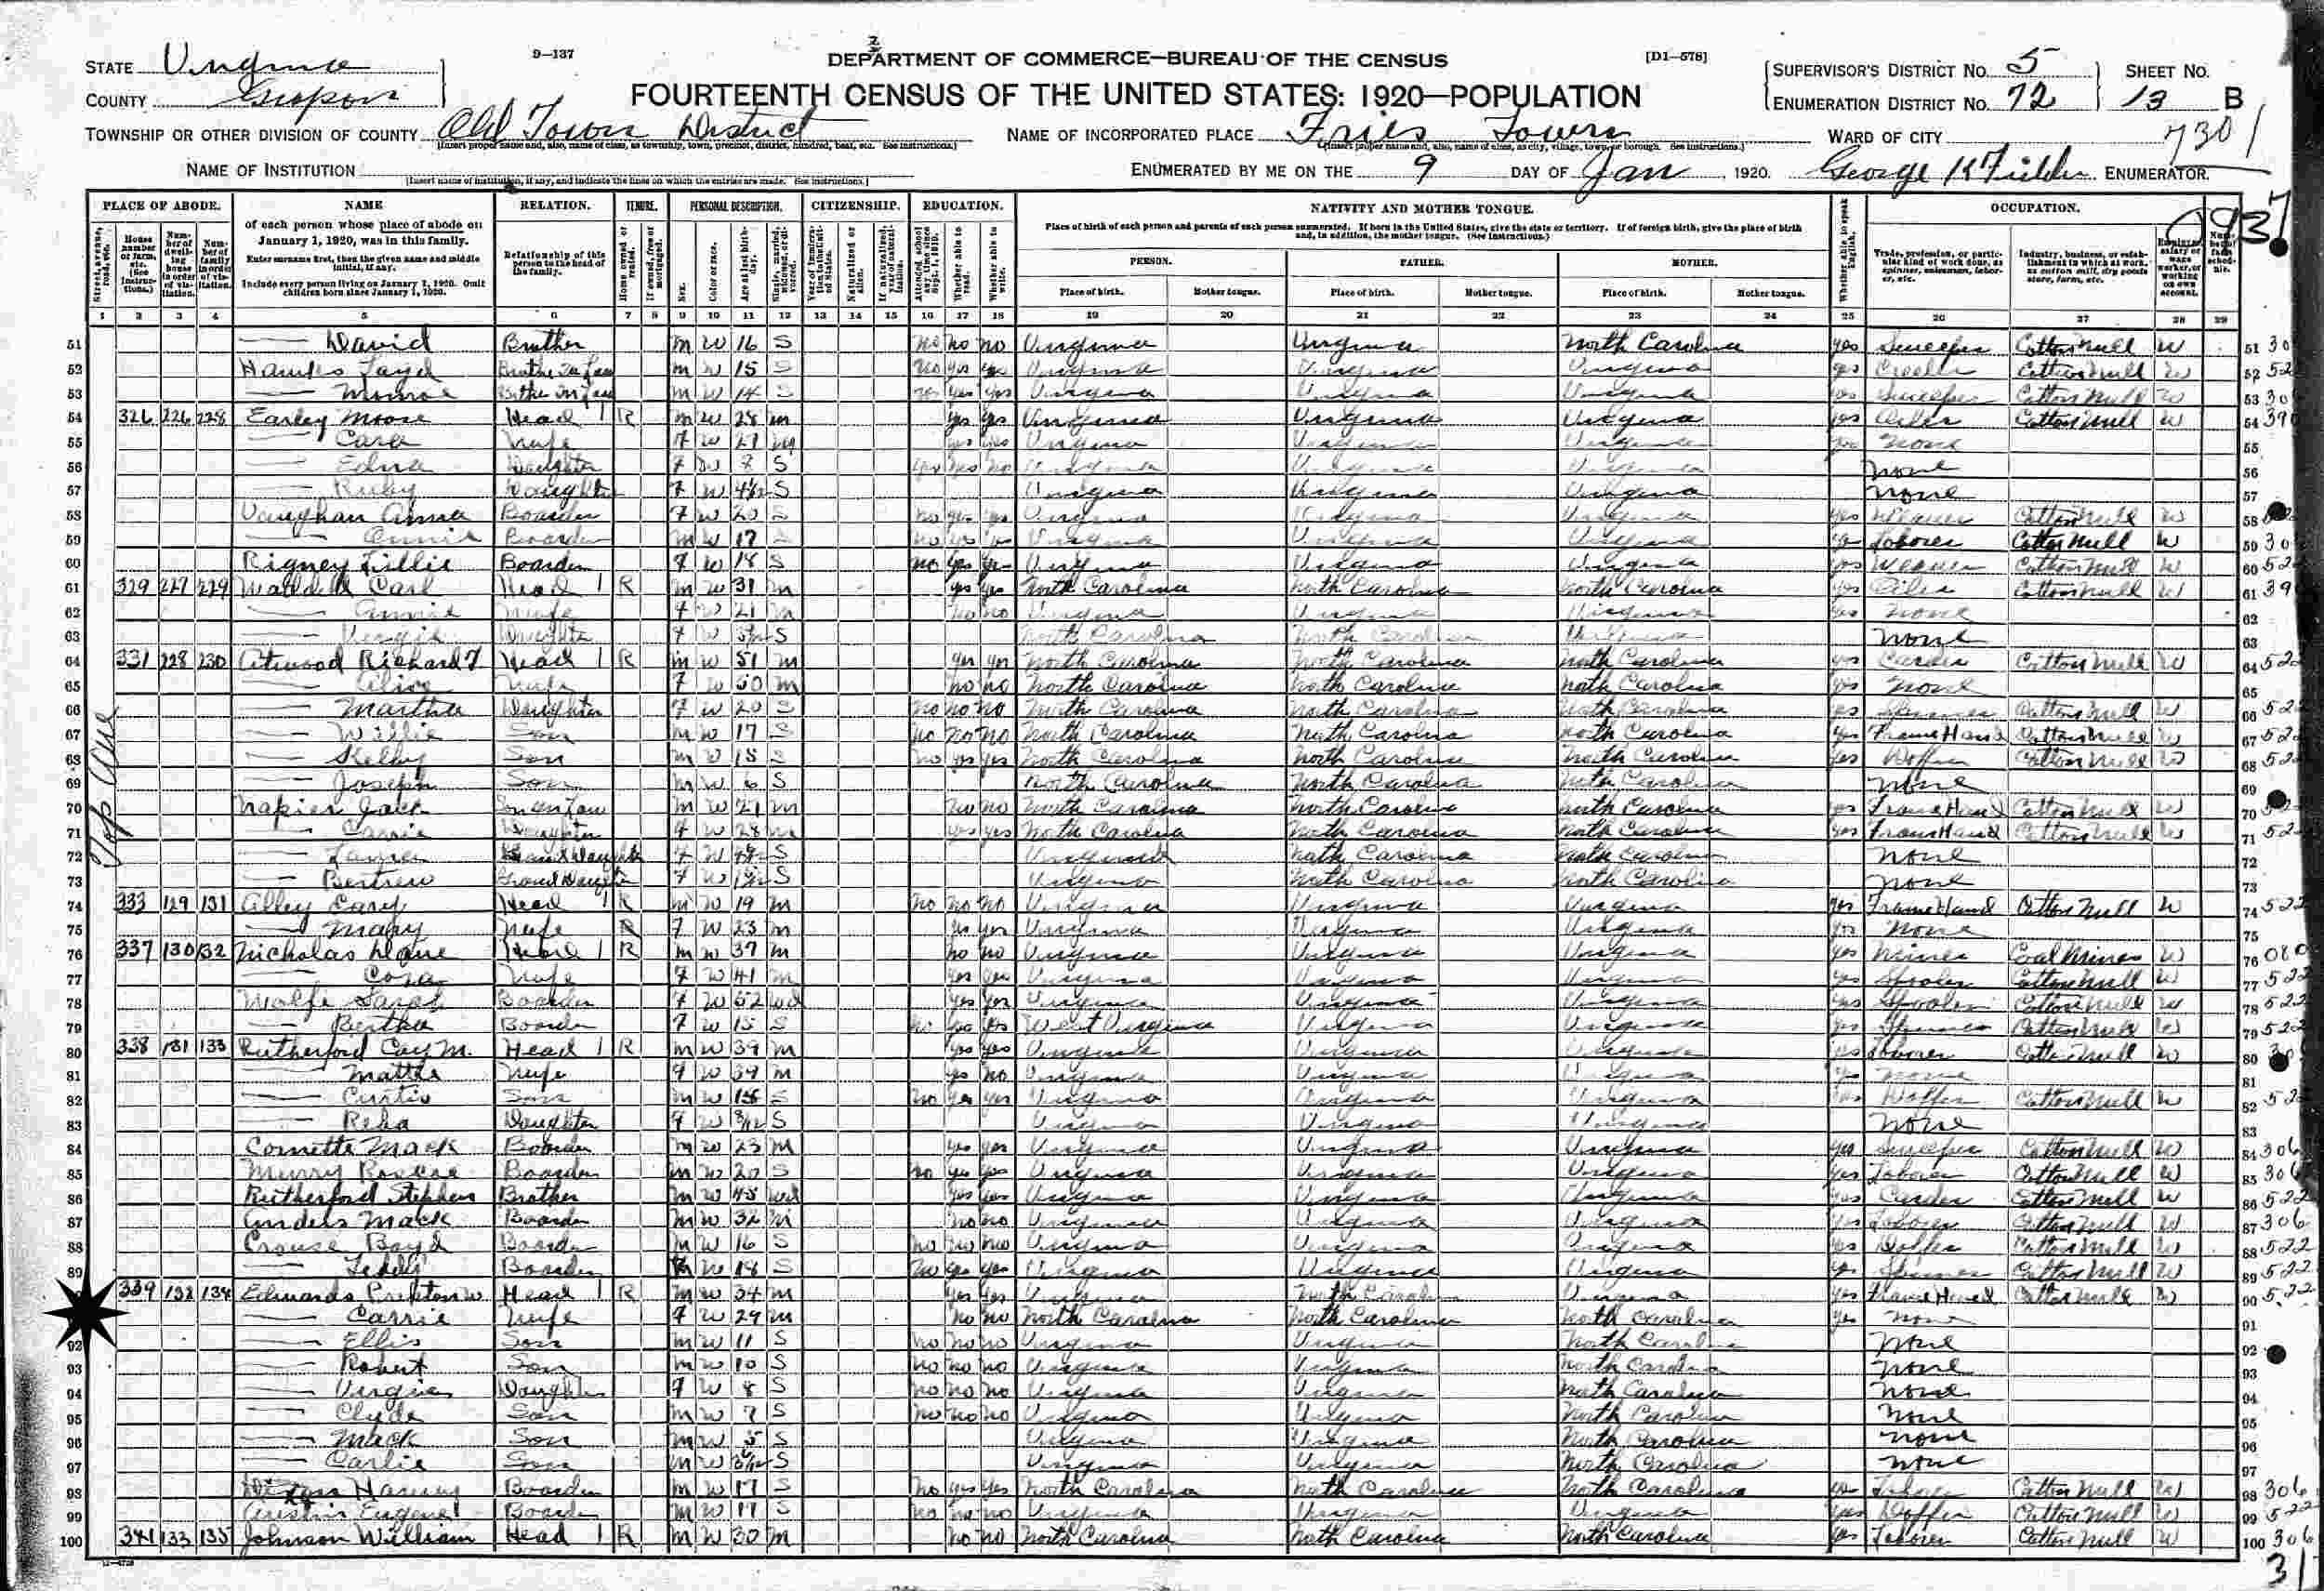 9-137
DEPARTMENT OF COMMERCE—BUREAU OF THE CENSUS
[D1-578]
STATE Virginia
COUNTY Grayson
FOURTEENTH CENSUS OF THE UNITED STATES: 1920—POPULATION
SUPERVISOR'S DISTRICT No. 5 SHEET No.
ENUMERATION DISTRICT No. 72 13 B
TOWNSHIP OR OTHER DIVISION OF COUNTY Old Town District
NAME OF INCORPORATED PLACE Fries Town
WARD OF CITY
7301
NAME OF INSTITUTION
ENUMERATED BY ME ON THE 9 DAY OF Jan, 1920. George K Fielder ENUMERATOR.
PLACE OF ABODE. NAME RELATION. TENURE. PERSONAL DESCRIPTION. CITIZENSHIP. EDUCATION. NATIVITY AND MOTHER TONGUE. OCCUPATION.
of each person whose place of abode on January 1, 1920, was in this family.
Enter surname first, then the given name and middle initial, if any.
Include every person living on January 1, 1920. Omit children born since January 1, 1920.
Relationship of this person to the head of the family.
Place of birth of each person and parents of each person enumerated. If born in the United States, give the state or territory. If of foreign birth, give the place of birth and, in addition, the mother tongue. (See Instructions.)
PERSON. FATHER. MOTHER.
Place of birth. Mother tongue. Place of birth. Mother tongue. Place of birth. Mother tongue.
1 2 3 4 5 6 7 8 9 10 11 12 13 14 15 16 17 18 19 20 21 22 23 24 25 26 27 28 29
51 — David Brother m W 16 S no no no Virginia Virginia North Carolina yes Sweeper Cotton Mill W 51
52 Brother In Law m W 15 S no yes yes Virginia Virginia Virginia yes Cotton Mill W 52
53 — Monroe Brother In Law m W 14 S no yes yes Virginia Virginia Virginia yes Sweeper Cotton Mill W 53
54 326 226 228 Earley Moose Head 1 R m W 28 m yes yes Virginia Virginia Virginia yes Oiler Cotton Mill W 54
55 — Cara Wife F W 27 m yes yes Virginia Virginia Virginia yes None 55
56 — Edna Daughter F W 7 S yes no no Virginia Virginia Virginia None 56
57 — Ruby Daughter F W S Virginia Virginia Virginia None 57
58 Vaughan Anna Boarder F W 20 S no yes yes Virginia Virginia Virginia yes Weaver Cotton Mill W 58
59 — Boarder m W 17 S no yes yes Virginia Virginia Virginia yes Laborer Cotton Mill W 59
60 Rigney Lillie Boarder F W 18 S no yes yes Virginia Virginia Virginia yes Weaver Cotton Mill W 60
61 329 227 229 Carl Head 1 R m W 31 m yes yes North Carolina North Carolina North Carolina yes Oiler Cotton Mill W 61
62 — Annie Wife F W 21 m no no Virginia Virginia Virginia yes None 62
63 — Vergie Daughter F W S North Carolina North Carolina Virginia None 63
64 331 228 230 Atwood Richard T Head 1 R m W 51 m yes yes North Carolina North Carolina North Carolina yes Carder Cotton Mill W 64
65 — Alice Wife F W 50 m no no North Carolina North Carolina North Carolina yes None 65
66 — Martha Daughter F W 20 S no no no North Carolina North Carolina North Carolina yes Spinner Cotton Mill W 66
67 — Willie Son m W 17 S no no no North Carolina North Carolina North Carolina yes Frame Hand Cotton Mill W 67
68 — Kelley Son m W 15 S no yes yes North Carolina North Carolina North Carolina yes Doffer Cotton Mill W 68
69 — Joseph Son m W 6 S North Carolina North Carolina North Carolina None 69
70 Napier Jack Son In Law m W 21 m no no North Carolina North Carolina North Carolina yes Frame Hand Cotton Mill W 70
71 — Carrie Daughter F W 28 m yes yes North Carolina North Carolina North Carolina yes Frame Hand Cotton Mill W 71
72 — Grand Daughter F W S Virginia North Carolina North Carolina None 72
73 — Grand Daughter F W S Virginia North Carolina North Carolina None 73
Top Ave
74 333 129 131 Alley Cary Head 1 R m W 19 m no no no Virginia Virginia Virginia yes Frame Hand Cotton Mill W 74
75 — Mary Wife R F W 23 m yes yes Virginia Virginia Virginia yes None 75
76 337 130 132 Nicholas Head 1 R m W 37 m no no Virginia Virginia Virginia yes Miner Coal Mines W 76
77 — Cora Wife F W 41 m yes yes Virginia Virginia Virginia yes Spooler Cotton Mill W 77
78 Wolfe Sarah Boarder F W 52 wd yes yes Virginia Virginia Virginia yes Spooler Cotton Mill W 78
79 — Bertha Boarder F W 15 S no yes yes West Virginia Virginia Virginia yes Spinner Cotton Mill W 79
80 338 131 133 Rutherford Coy M. Head 1 R m W 39 m yes yes Virginia Virginia Virginia yes Laborer Cotton Mill W 80
81 — Mattie Wife F W 37 m yes no Virginia Virginia Virginia yes None 81
82 — Curtis Son m W 15 S no yes yes Virginia Virginia Virginia yes Doffer Cotton Mill W 82
83 — Reba Daughter F W 8/12 S Virginia Virginia Virginia None 83
84 Cornette Mack Boarder m W 23 m yes yes Virginia Virginia Virginia yes Sweeper Cotton Mill W 84 306
85 Murry Roscoe Boarder m W 20 S no yes yes Virginia Virginia Virginia yes Laborer Cotton Mill W 85 306
86 Rutherford Stephen Brother m W 45 wd yes yes Virginia Virginia Virginia yes Carder Cotton Mill W 86 522
87 Anders Mack Boarder m W 32 m no no Virginia Virginia Virginia yes Laborer Cotton Mill W 87 306
88 Crouse Boyd Boarder m W 16 S no no no Virginia Virginia Virginia yes Doffer Cotton Mill W 88 522
89 — Boarder W 18 S no yes yes Virginia Virginia Virginia yes Spinner Cotton Mill W 89 522
339 132 134 Edwards Preston W Head 1 R m W 34 m yes yes Virginia North Carolina Virginia yes Frame Hand Cotton Mill W 90 522
— Carrie Wife F W 29 m no no North Carolina North Carolina North Carolina yes None 91
92 — Ellis Son m W 11 S no no no Virginia Virginia North Carolina None 92
93 — Robert Son m W 10 S no no no Virginia Virginia North Carolina None 93
94 — Virginia Daughter F W 8 S no no no Virginia Virginia North Carolina None 94
95 — Clyde Son m W 7 S no no no Virginia Virginia North Carolina None 95
96 — Mack Son m W 5 S Virginia Virginia North Carolina None 96
97 — Carlie Son m W S Virginia Virginia North Carolina None 97
98 Harvey Boarder m W 17 S no yes yes North Carolina North Carolina North Carolina yes Laborer Cotton Mill W 98 306
99 Austin Eugene Boarder m W 17 S no no no Virginia Virginia Virginia yes Doffer Cotton Mill W 99 522
100 341 133 135 Johnson William Head 1 R m W 30 m no no North Carolina North Carolina North Carolina yes Laborer Cotton Mill W 100 306